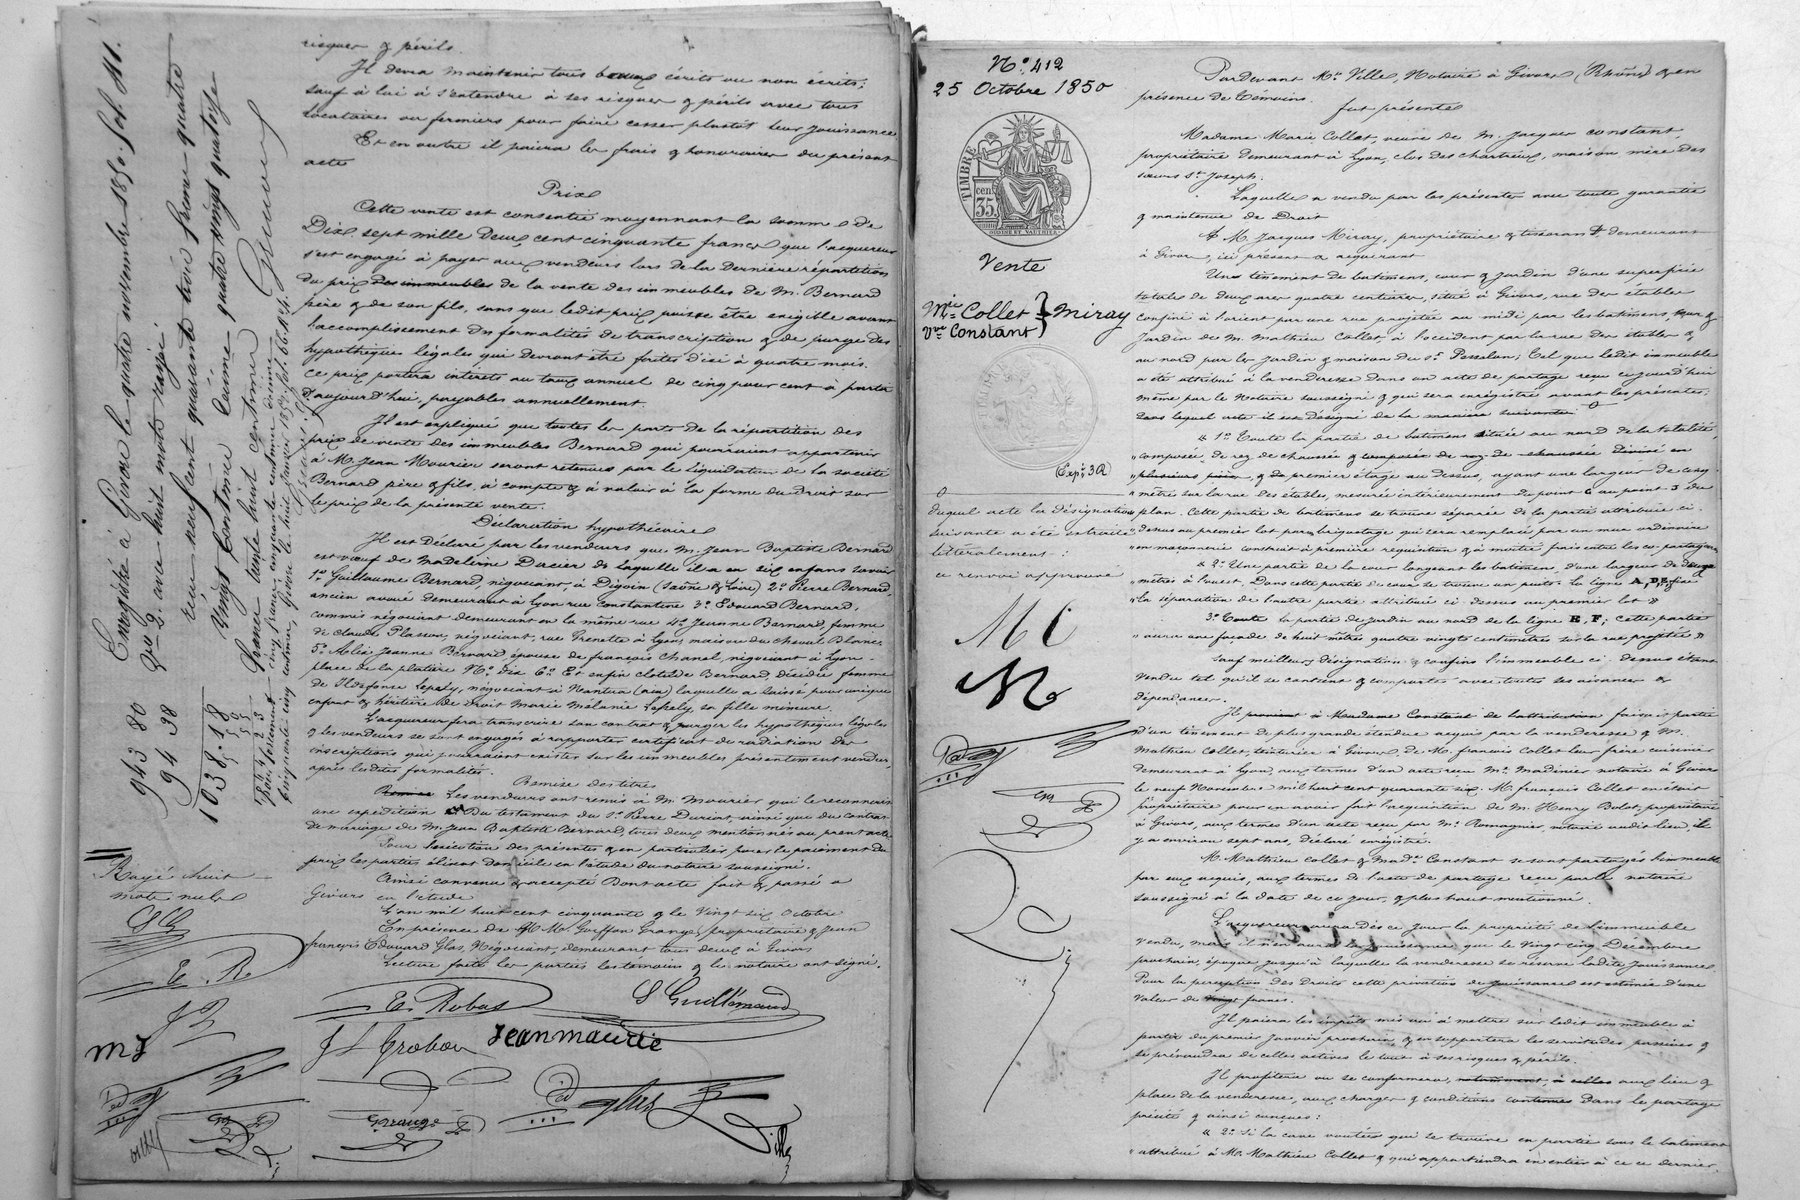 risques & périls.
Il devra maintenir tous baux écrits ou non écrits;
sauf à lui à s'entendre à ses risques & périls avec tous
locataires ou fermiers pour faire cesser plustôt leur jouissance
Et en outre il paiera les frais & honoraires du présent
acte
Prix
Cette vente est consentie moyennant la somme de
Dix sept mille deux cent cinquante francs que l'acquéreur
s'est engagé à payer aux vendeurs lors de la dernière répartition
du prix des immeubles de la vente des immeubles de M. Bernard
père & de son fils, sans que ledit prix puisse être exigible avant
l'accomplissement des formalités de transcription & de purge des
hypothèques légales qui devront être faites d'ici à quatre mois.
Ce prix portera intérêts au taux annuel de cinq pour cent à partir
d'aujourd'hui, payables annuellement.
Il est expliqué que toutes les parts de la répartition des
prix de vente des immeubles Bernard qui pourraient appartenir
à M. Jean Mourier seront retenues par le liquidateur de la société
Bernard père & fils, à compte & à valoir à la forme du droit sur
le prix de la présente vente.
Déclaration hypothécaire
Il est déclaré par les vendeurs que M. Jean Baptiste Bernard
est veuf de Madeleine Durier de laquelle il a eu six enfans savoir
1º Guillaume Bernard négociant, à Digoin (Saône & Loire) 2º Pierre Bernard
ancien avoué demeurant à Lyon rue Constantine 3º Edouard Bernard,
commis négociant demeurant en la même rue 4º Jeanne Bernard, femme
de Claude Plasson, négociant, rue Grenette à Lyon, maison du cheval Blanc
5º Jeanne Bernard épouse de françois Chanal, négociant à Lyon
place de la platière Nº dix 6º Et enfin Clotilde Bernard décédée femme
de Ildefonse négociant à Nantua (ain) laquelle a laissé pour unique
enfant & héritière de droit Marie Mélanie sa fille mineure.
L'acquereur fera transcrire son contrat & purger les hypothèques légales
& les vendeurs se sont engagés à rapporter certificat de radiation des
inscriptions qui pourraient exister sur les immeubles présentement vendus,
après lesdites formalités.
Remise des titres
Les vendeurs ont remis à M. Mourier qui le reconnait
une expédition Du testament du Sr. Pierre Duriat, ainsi que du contrat
de mariage de M. Jean Baptiste Bernard, tous deux mentionnés au présent acte
Pour l'exécution des présentes & en particulier pour le paiement du
prix les parties élisent domicile en l'étude du notaire soussigné.
Ainsi convenu & accepté Dont acte fait & passé à
Givors en l'étude
L'an mil huit cent cinquante & le vingt six octobre
En présence de MM. Goiffon Grange, propriétaire & Jean
françois Edouard Glas, Négociant, demeurant tous deux à Givors
Lecture faite les parties les témoins & le notaire ont signé.
E. Robas
S Guillemaud
Jean maurie
Grange
glas
Ville
Enregistré à Givors le quatre novembre 1850. fol. 111.
943 80
94 38
1038.18
Rayé huit
mots nuls
E. R
Nº. 412
25 Octobre 1850
TIMBRE
cen
35
OUDINÉ ET VAUTHIER
Vente
Mie Collet
Vve Constant
Miray
(Expn 3 R)
duquel acte la désignation
suivante a été extraite
littéralement :
ce renvoi approuvé
M C
M
Pardevant Me. Ville, Notaire à Givors (Rhône) & en
présence de témoins.
fut présente
Madame Marie Collet, veuve de M. Jacques Constant,
propriétaire demeurant à Lyon, clos des chartreux, maison mère des
sœurs St. Joseph.
Laquelle a vendu par les présentes avec toute garantie
& maintenue de Droit
A M. Jacques Miray, propriétaire & tisserand demeurant
à Givors, ici présent & acquérant
Un tènement de batimens, cour & jardin d'une superficie
totale de deux ares quatre centiares, situé à Givors, rue des étables
confiné à l'orient par une rue projetée au midi par les batimens, cour &
jardin de M. Mathieu Collet, à l'occident par la rue des étables &
au nord par les jardin & maison du Sr. Pesselon; Tel que ledit immeuble
a été attribué à la venderesse dans un acte de partage reçu cejourd'hui
même par le Notaire soussigné & qui sera enregistré avant les présentes,
dans lequel acte il est désigné de la manière suivante:
« 1º Toute la partie de batimens située au nord de la totalité,
« composée de rez de chaussée & composée de rez de chaussée divisé en
« plusieurs pièces, & de premier étage au dessus, ayant une largeur de cinq
« mètres sur la rue des étables, mesurée intérieurement du point 6 au point 3 du
plan. Cette partie de batimens se trouve séparée de la partie attribuée ci
« dessus au premier lot par un briquetage qui sera remplacé par un mur ordinaire
« en maçonnerie construit à première réquisition & à moitié frais entre les co-partageans
« 2º Une partie de la cour longeant les batimens, d'une largeur de deux
« mètres à l'ouest, Dans cette partie de cour se trouve un puits. La ligne A, D, E, fixe
« la séparation de l'autre partie attribuée ci dessus au premier lot »
3º Toute la partie de jardin au nord de la ligne E, F; cette partie
« aura une façade de huit mètres quatre vingts centimètres sur la rue projetée »
Sauf meilleurs désignation & confins l'immeuble ci dessus étant
vendu tel qu'il se contient & comporte avec toutes ses aisances &
dépendances.
Il provient à Madame Constant de l'attribution faisait partie
d'un tènement de plus grande étendue acquis par la venderesse & M.
Mathieu Collet, teinturier à Givors, de M. francois Collet leur frère cuisinier
demeurant à Lyon, aux termes d'un acte reçu Me. Madinier notaire à Givors
le neuf Novembre mil huit cent quarante six. M. françois Collet en était
propriétaire pour en avoir fait l'acquisition de M. Henry Bolot, propriétaire
à Givors, aux termes d'un acte reçu par Me. Romagnier, notaire audit lieu, il
y a environ sept ans, déclaré enregistré.
M. Mathieu Collet & Made. Constant se sont partagés l'immeuble
par eux acquis, aux termes de l'acte de partage reçu par le notaire
soussigné à la date de ce jour, & plus haut mentionné.
L'acquéreur aura dès ce jour la propriété de l'immeuble
vendu, mais il n'en aura la jouissance que le vingt cinq Décembre
prochain, époque jusqu'à laquelle la venderesse se réserve ladite jouissance
Pour la perception des Droits cette privation de jouissance est estimée d'une
valeur de vingt francs.
Il paiera les impôts mis ou à mettre sur ledit immeuble à
partir du premier janvier prochain, & en supportera les servitudes passives &
se prévaudra de celles actives le tout à ses risques & périls.
Il profitera ou se conformera, notamment, à celles aux lieu &
place de la venderesse, aux charges & conditions contenues dans le partage
précité & ainsi conçues:
« 2º si la cave voutée qui se trouve en partie sous le batiment
« attribué à M. Mathieu Collet & qui appartiendra en entier à ce dernier